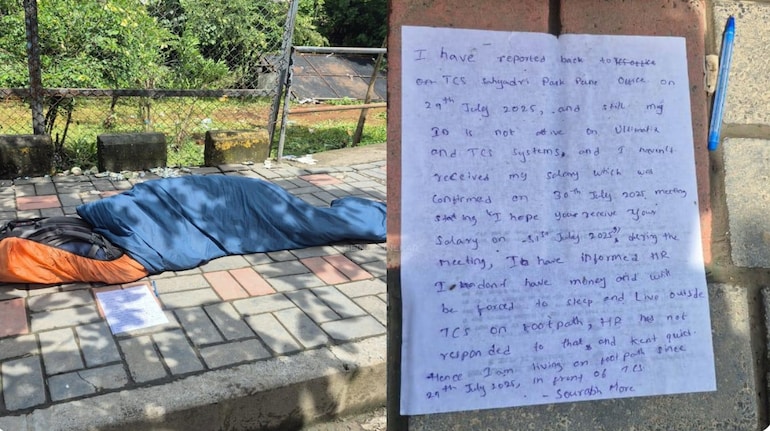 I have reported back to
on TCS Sahyadri Park Pune Office on
29th July 2025, and still my
ID is not ative on Ultimatix
and TCS systems, and I haven't
received my salary which was
confirmed on 30th July 2025, meeting
stating "I hope your receive your
Salary on 31st July 2025", during the
meeting, I have informed HR
I dont have money and will
be forced to sleep and Live outside
TCS on footpath, HR has not
responded to that, and kept quiet.
Hence I am living on footpath since
29th July 2025, in front of TCS
- Saurabh More